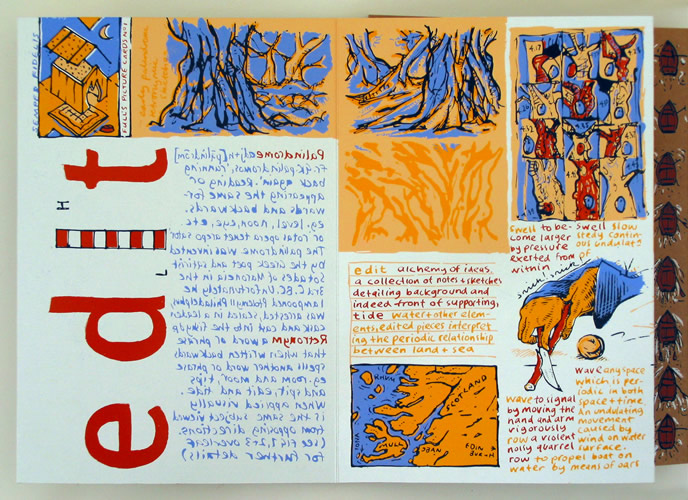 SEMPER FIDELIS
FULL'S PICTURE CARDS No 1
edit
H
L
Palindrome
palindromos, running
back again. Reading or
appearing the same for-
wards and backwards.
eg. level, noon, eye, etc
or rotor opera tenet arepo sator
The palindrome was invented
by the Greek poet and satirist
Sotades of Maroneia in the
3rd C. B.C. Unfortunately he
lampooned Ptolemy II Philadelphus,
was arrested, sealed in a leaden
cask and cast into the
Retronym a word or phrase
that when written backwards
spells another word or phrase
eg. room and moor, tips
and spit, edit and tide.
When applied visually
is the same subject viewed
from opposing directions.
(see Fig 1, 2 & 3 overleaf
for further details)
edit alchemy of ideas,
a collection of notes & sketches
detailing background and
indeed front of supporting,
tide water & other elem-
ents, edited pieces interpret
ing the periodic relationship
between land & sea
RHUM
SCOTLAND
MULL
IONA
OBAN
EDIN
BURGH
4.17
swell to be-
come larger
by pressure
exerted from
within
swell slow
stedy contin-
ous undulat?
of
wave to signal
by moving the
hand and arm
vigorously
row a violent
noisy quarrel
row to propel boat on
water by means of oars
wave any space
which is per-
iodic in both
space & time.
An undulating
movement
caused by
wind on water
surface.